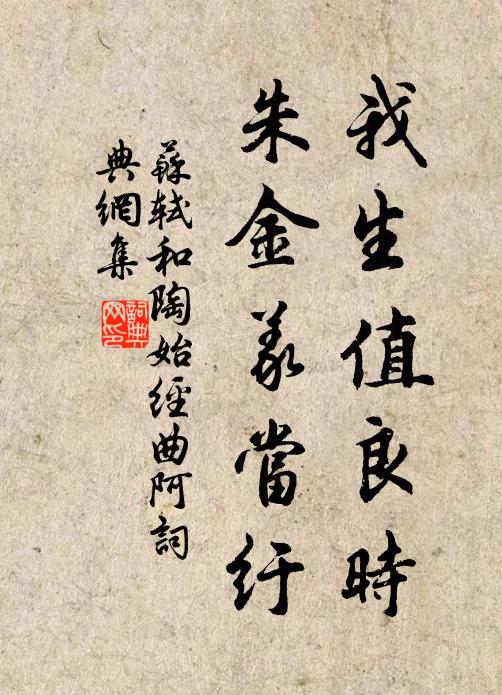 我生值良時
朱金義當紆
蘇軾和陶始經曲阿詞
典網集
詞典網印